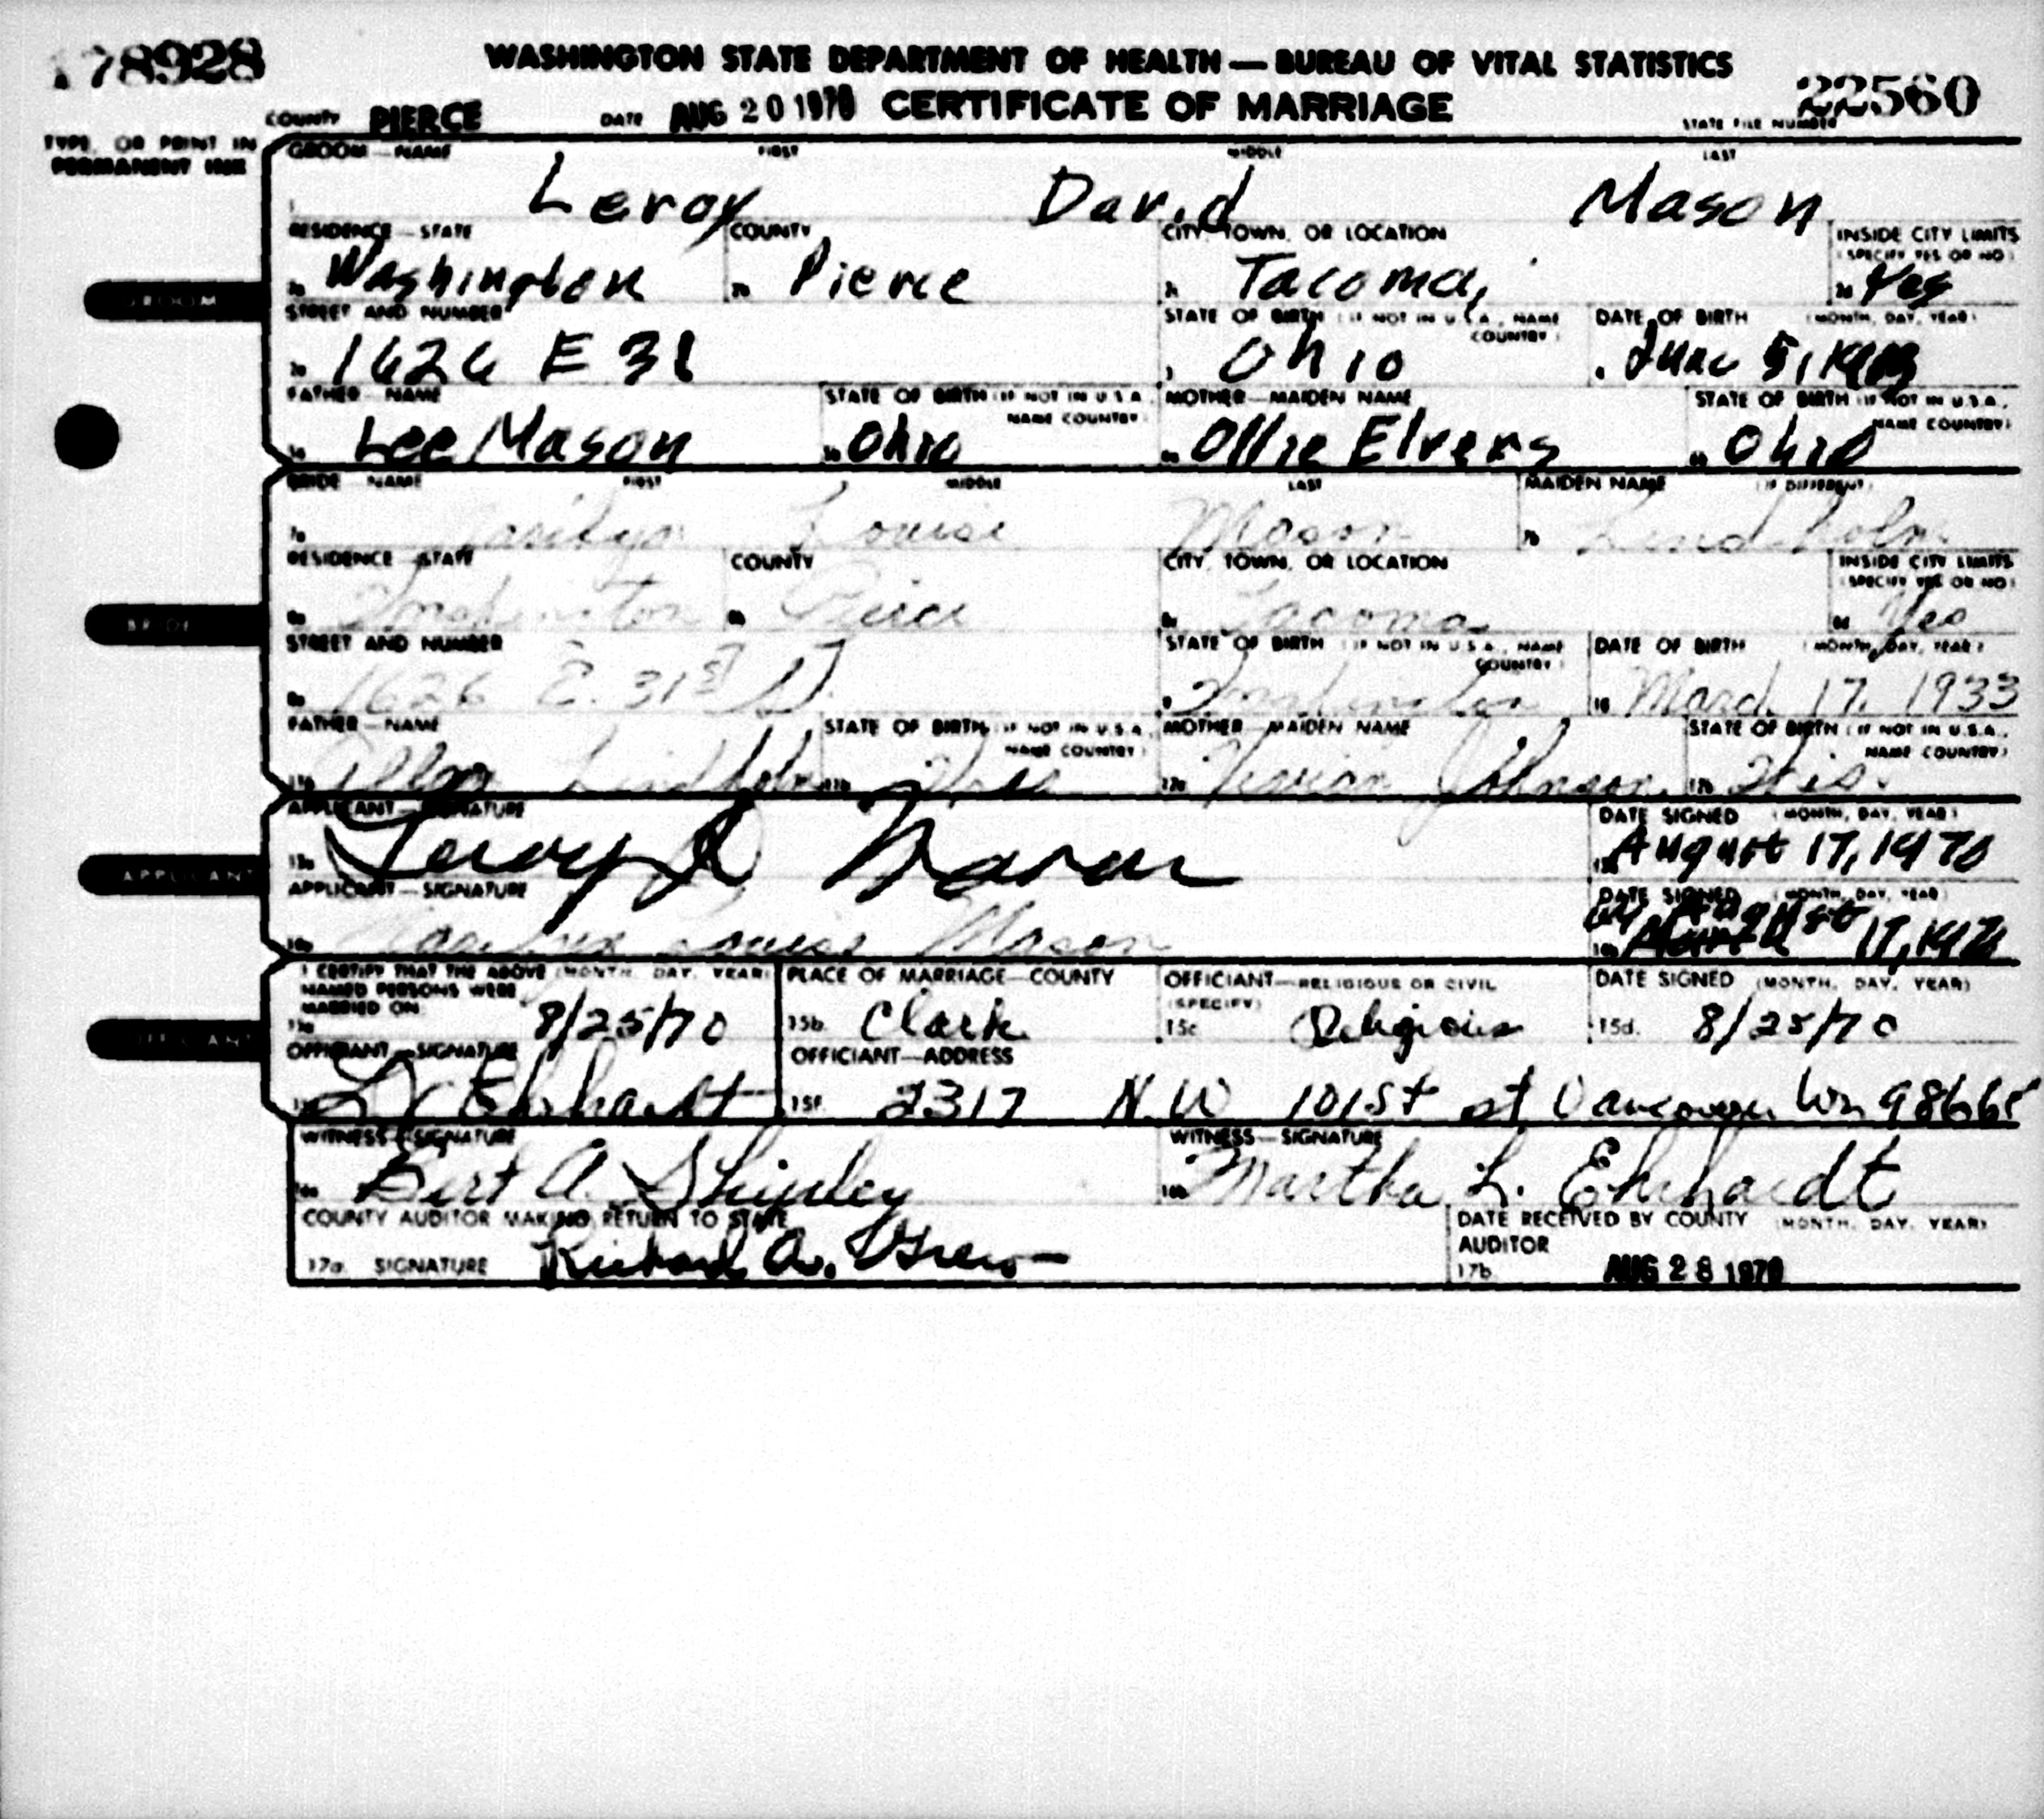 78928
WASHINGTON STATE DEPARTMENT OF HEALTH — BUREAU OF VITAL STATISTICS
22560
COUNTY PIERCE DATE AUG 20 1970 CERTIFICATE OF MARRIAGE STATE FILE NUMBER
TYPE, OR PRINT IN
PERMANENT INK
GROOM—NAME FIRST MIDDLE LAST
1 Leroy David Mason
RESIDENCE—STATE COUNTY CITY, TOWN, OR LOCATION INSIDE CITY LIMITS
(SPECIFY YES OR NO)
2a Washington 2b Pierce 2c Tacoma, 2d Yes
GROOM
STREET AND NUMBER STATE OF BIRTH (IF NOT IN U.S.A., NAME COUNTRY) DATE OF BIRTH (MONTH, DAY, YEAR)
2e 1626 E 31 3 Ohio June 5,
FATHER—NAME STATE OF BIRTH (IF NOT IN U.S.A., NAME COUNTRY) MOTHER—MAIDEN NAME STATE OF BIRTH (IF NOT IN U.S.A., NAME COUNTRY)
5a Lee Mason 5b Ohio 6a Ollie Elvers 6b Ohio
BRIDE NAME FIRST MIDDLE LAST MAIDEN NAME (IF DIFFERENT)
7a Marilyn Louise Mason 7b Lindholm
RESIDENCE—STATE COUNTY CITY, TOWN, OR LOCATION INSIDE CITY LIMITS
(SPECIFY YES OR NO)
8a Washington 8b Pierce 8c Tacoma 8d Yes
BRIDE
STREET AND NUMBER STATE OF BIRTH (IF NOT IN U.S.A., NAME COUNTRY) DATE OF BIRTH (MONTH, DAY, YEAR)
8e 1626 E. 31st St 9 Washington 10 March 17, 1933
FATHER—NAME STATE OF BIRTH (IF NOT IN U.S.A., NAME COUNTRY) MOTHER—MAIDEN NAME STATE OF BIRTH (IF NOT IN U.S.A., NAME COUNTRY)
11a Lindholm 11b 12a Johnson 12b Wis.
APPLICANT—SIGNATURE DATE SIGNED (MONTH, DAY, YEAR)
13a Leroy D Mason 13b August 17, 1970
APPLICANT
APPLICANT—SIGNATURE DATE SIGNED (MONTH, DAY, YEAR)
14a Marilyn Louise Mason 14b August 17, 1970
I CERTIFY THAT THE ABOVE (MONTH, DAY, YEAR) PLACE OF MARRIAGE—COUNTY OFFICIANT—RELIGIOUS OR CIVIL DATE SIGNED (MONTH, DAY, YEAR)
NAMED PERSONS WERE (SPECIFY)
MARRIED ON:
15a 8/25/70 15b. Clark 15c Religious 15d. 8/25/70
OFFICIANT
OFFICIANT—SIGNATURE OFFICIANT—ADDRESS
Ehrhardt 15f. 2317 N.W 101st st Vancouver Wn 98665
WITNESS—SIGNATURE WITNESS—SIGNATURE
16a Bert A. Shirley 16b Martha L. Ehrhardt
COUNTY AUDITOR MAKING RETURN TO STATE DATE RECEIVED BY COUNTY (MONTH, DAY, YEAR)
AUDITOR
17a. SIGNATURE Richard A. Greco 17b AUG 28 1970